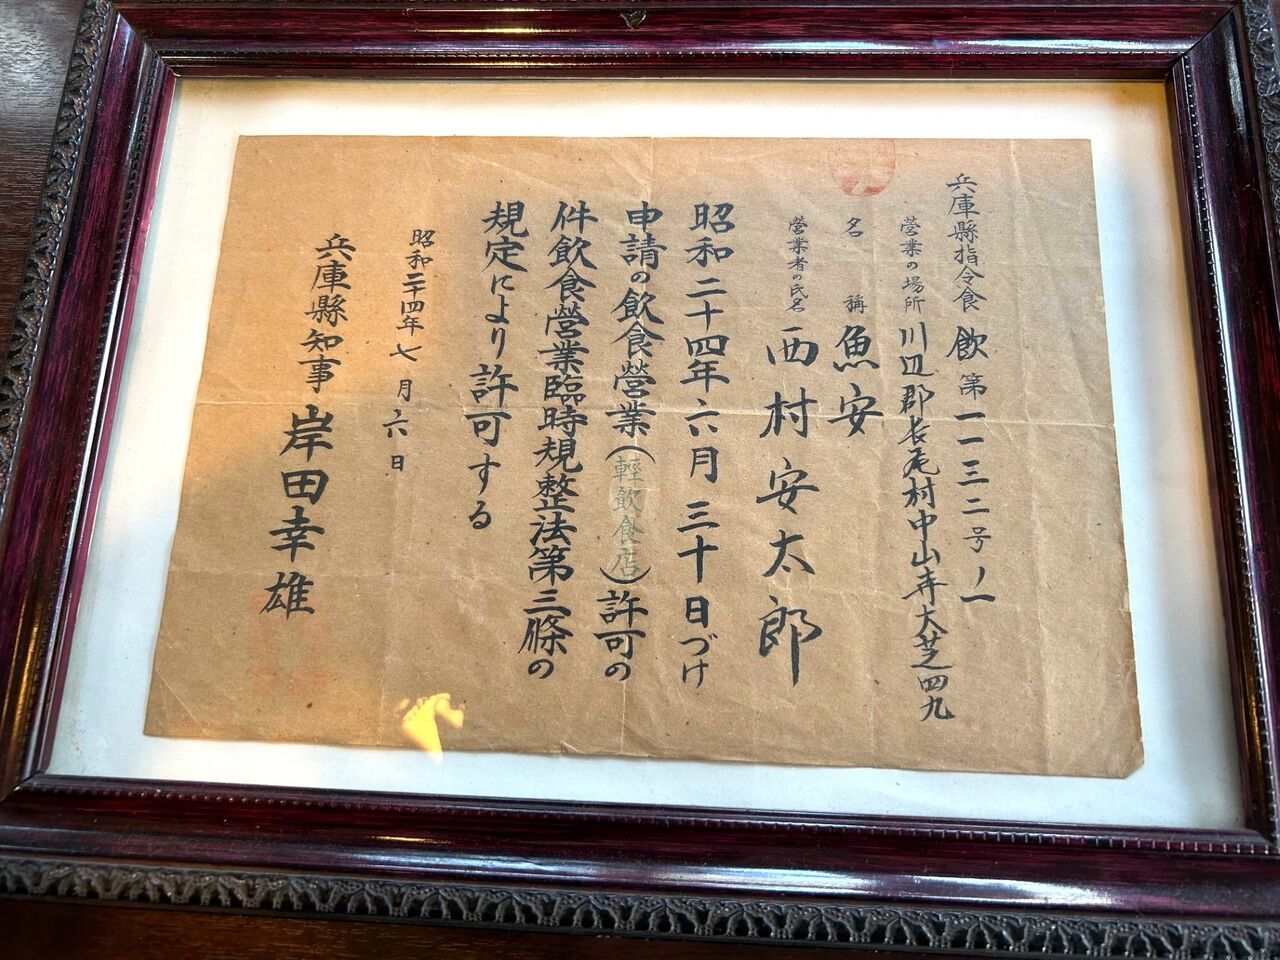 兵庫縣指令食飲第一一三二号ノ一
営業の場所 川辺郡長尾村中山寺大芝四九
名稱 魚安
営業者の氏名 西村安太郎
昭和二十四年六月三十日づけ
申請の飲食営業(輕飲食店)許可の
件飲食営業臨時規整法第三條の
規定により許可する
昭和二十四年七月六日
兵庫縣知事 岸田幸雄